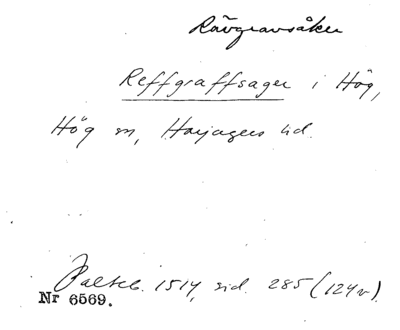 Rävgravsåker
Reffgraffsager i Hög,
Hög sn, Harjagers hd.
Palteb. 1514, sid. 285 (124v).
Nr 6569.